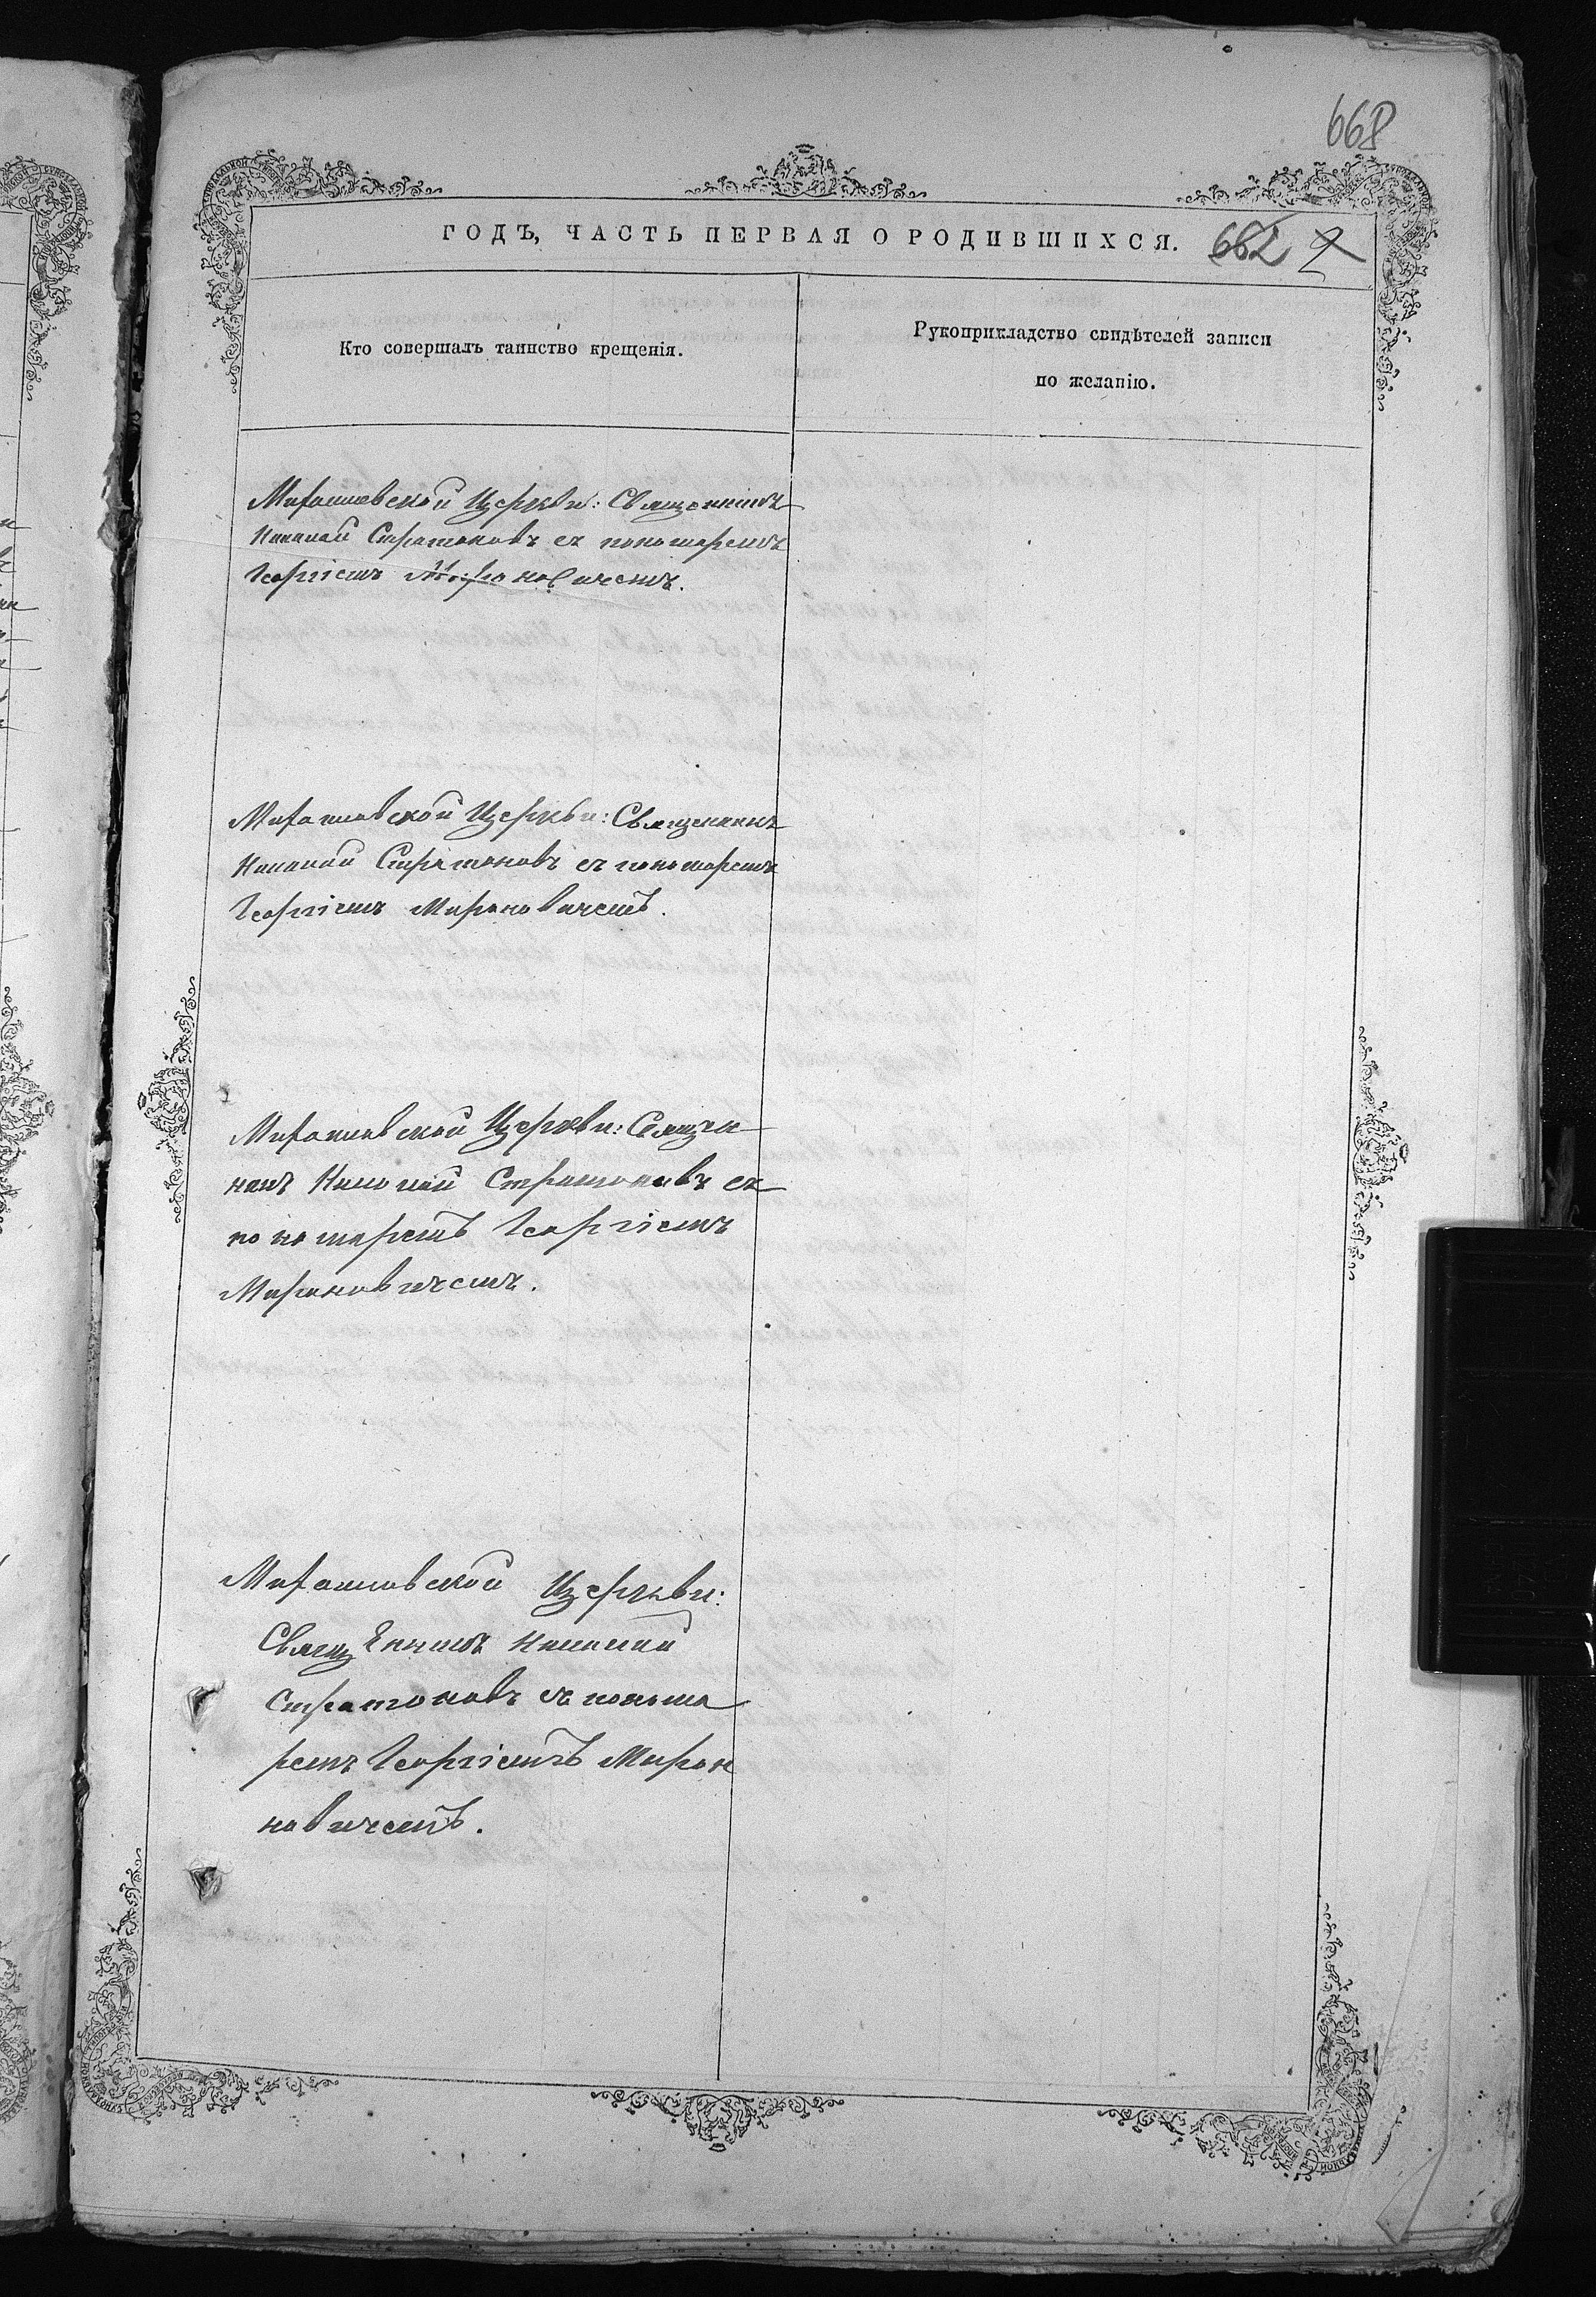 668
ГОДЪ, ЧАСТЬ ПЕРВАЯ О РОДИВШИХСЯ. 662 2
Кто совершалъ таинство крещенія.
Рукоприкладство свидѣтелей записи
по желанію.
Церкви: Священникъ
Николай Стратоновъ съ пономаремъ
Георгіемъ Мироновичемъ.
Церкви: Священникъ
Николай Стратоновъ съ пономаремъ
Георгіемъ Мироновичемъ.
Церкви: Священ
никъ Николай Стратоновъ съ
пономаремъ Георгіемъ
Мироновичемъ.
Церкви:
Священникъ Николай
Стратоновъ съ понома
ремъ Георгіемъ Мирон
новичемъ.